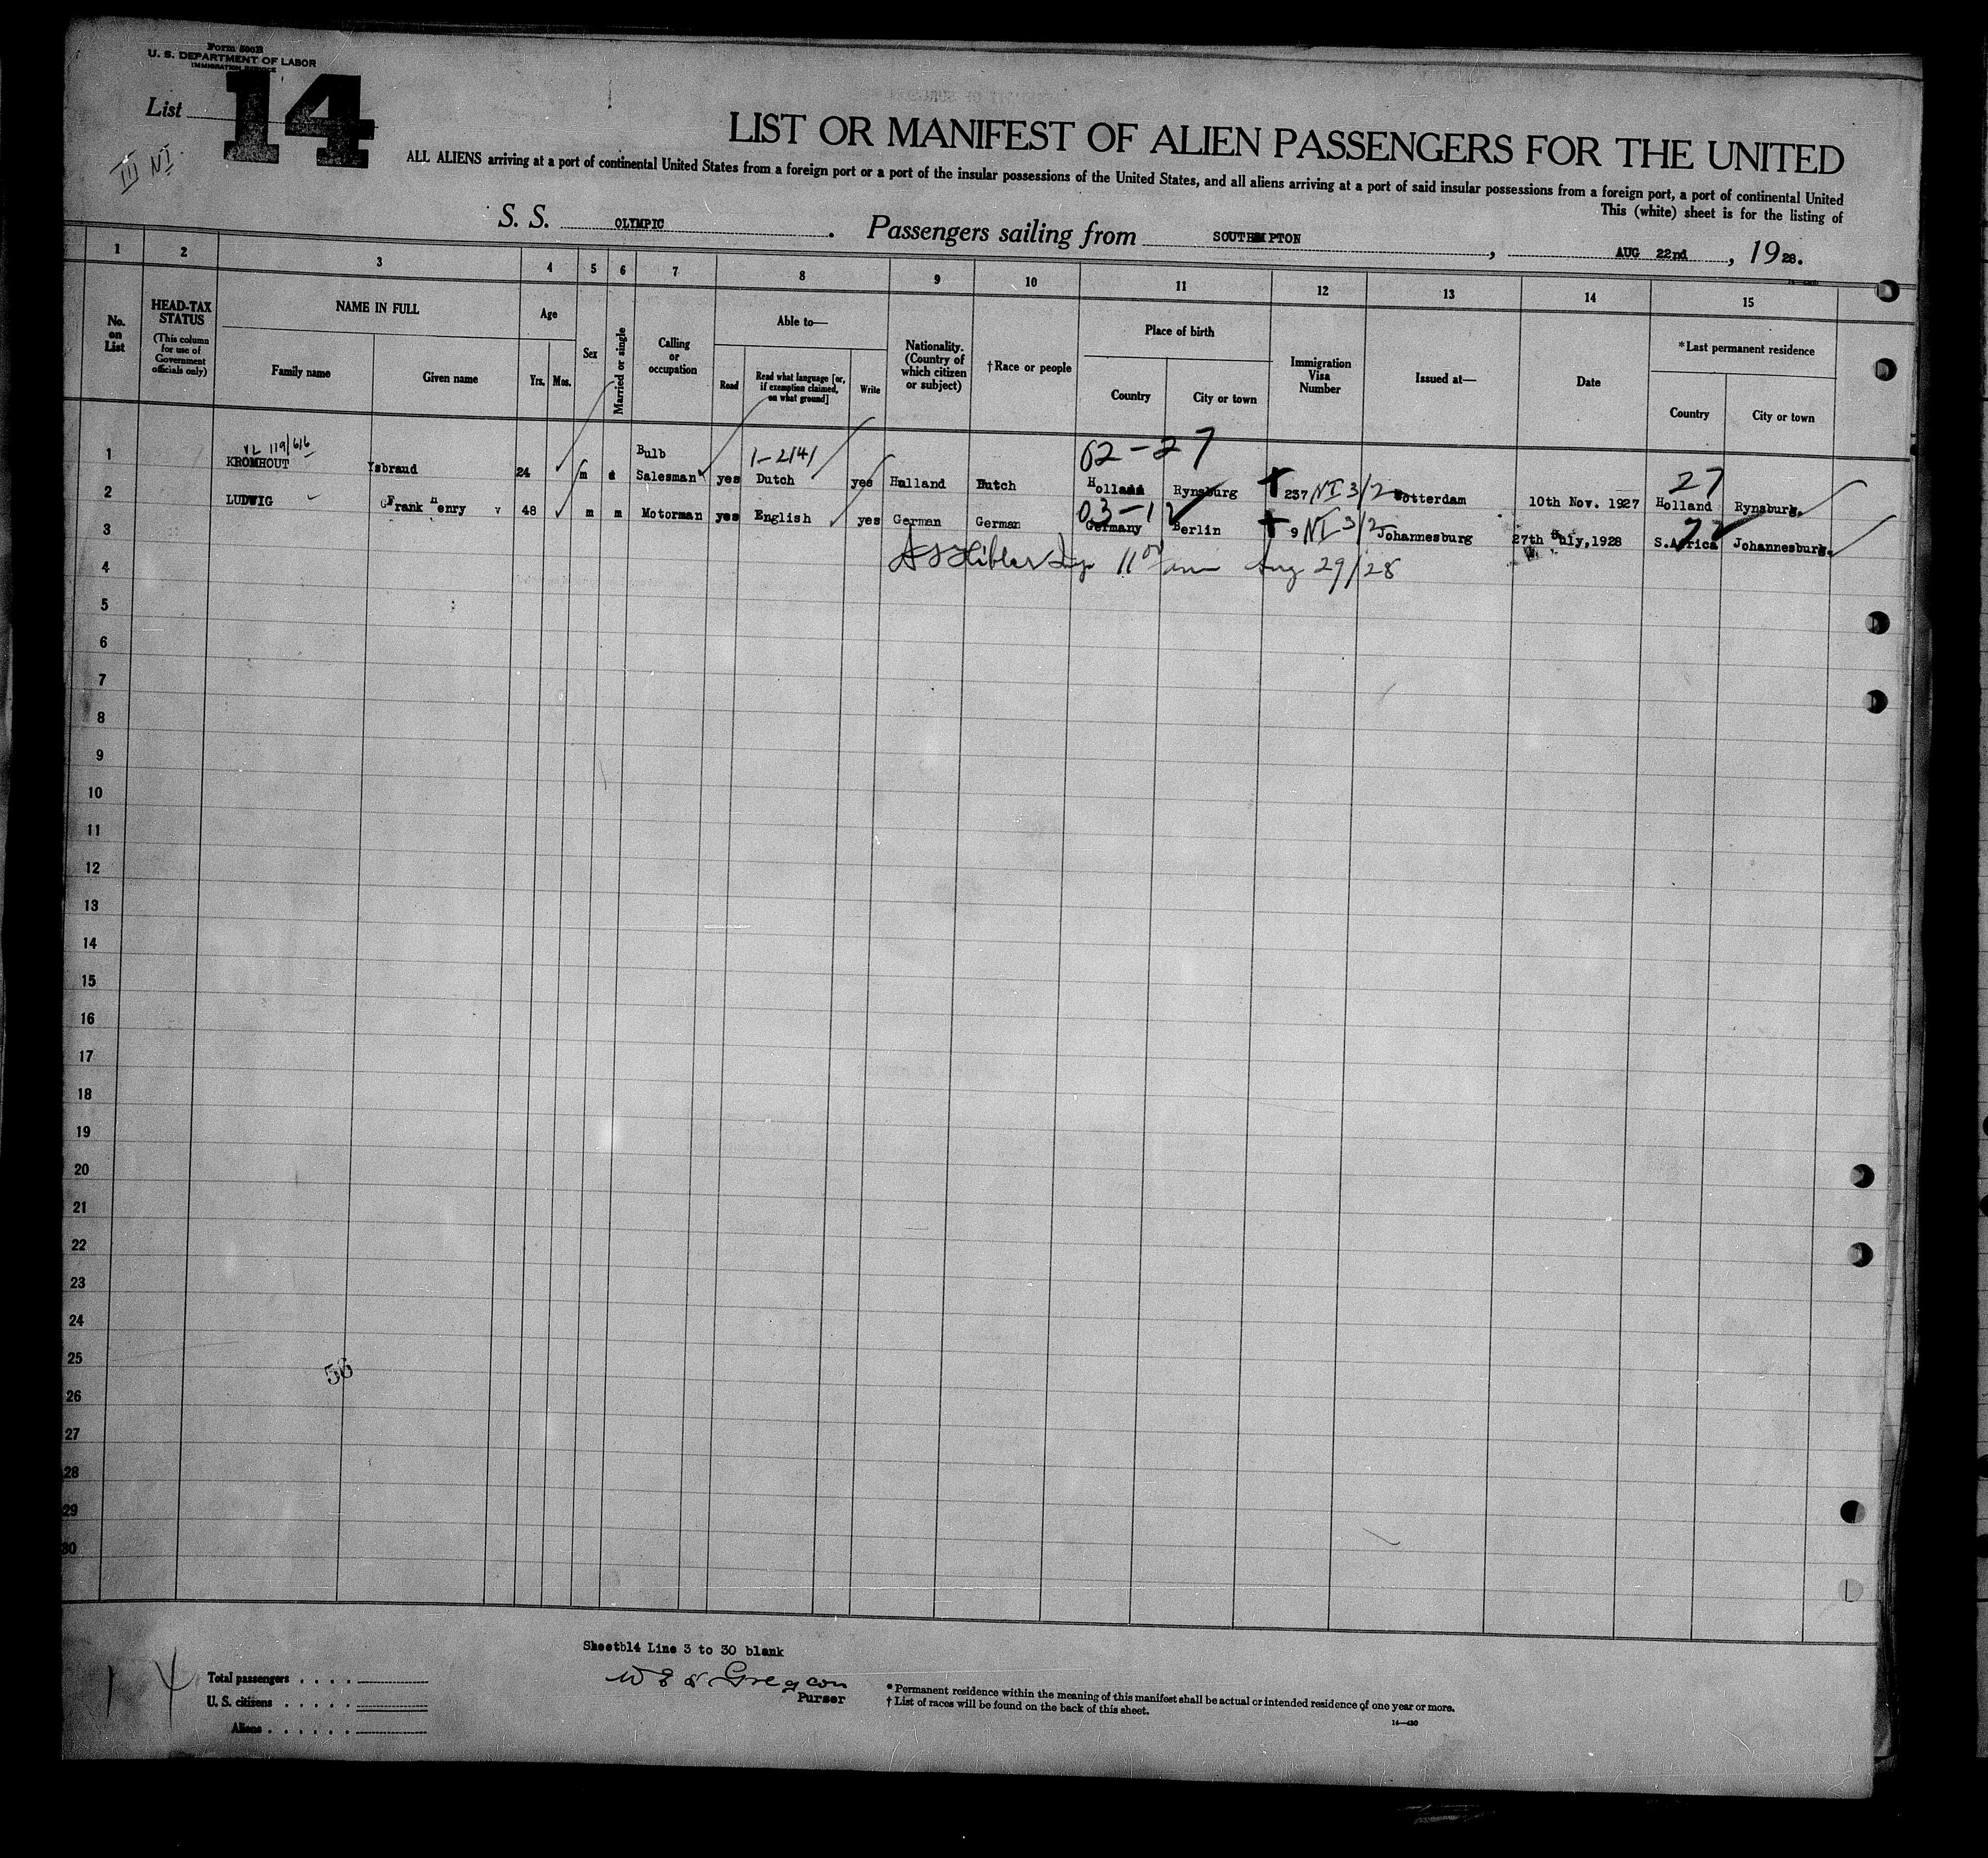 Form 500B
U. S. DEPARTMENT OF LABOR
IMMIGRATION SERVICE
List 14
III NI
LIST OR MANIFEST OF ALIEN PASSENGERS FOR THE UNITED
ALL ALIENS arriving at a port of continental United States from a foreign port or a port of the insular possessions of the United States, and all aliens arriving at a port of said insular possessions from a foreign port, a port of continental United
This (white) sheet is for the listing of
S. S. OLYMPIC. Passengers sailing from SOUTHMPTON, AUG 22nd, 1928.
1 2 3 4 5 6 7 8 9 10 11 12 13 14 15
No. on List
HEAD-TAX STATUS
(This column for use of Government officials only)
NAME IN FULL
Family name Given name
Age
Yrs. Mos.
Sex
Married or single
Calling or occupation
Able to—
Read Read what language [or, if exemption claimed, on what ground] Write
Nationality. (Country of which citizen or subject)
†Race or people
Place of birth
Country City or town
Immigration Visa Number
Issued at—
Date
*Last permanent residence
Country City or town
VL 119/616 1-2141 02-27 27
1 KROMHOUT Ysbraud 24 m Bulb Salesman yes Dutch yes Holland Dutch Holland Rynsburg 237 NI 3/2 Rotterdam 10th Nov. 1927 Holland Rynsburg.
03-1
2 LUDWIG Frank Henry v 48 m m Motorman yes English yes German German Germany Berlin 9 NI 3/2 Johannesburg 27th July,1928 S.Africa Johannesburg.
3
4 Aug 29/28
5
6
7
8
9
10
11
12
13
14
15
16
17
18
19
20
21
22
23
24
25
56
26
27
28
29
30
Sheetbl4 Line 3 to 30 blank
Purser
Total passengers . . . .
U. S. citizens . . . . .
Aliens . . . . . .
* Permanent residence within the meaning of this manifest shall be actual or intended residence of one year or more.
† List of races will be found on the back of this sheet.
14—430